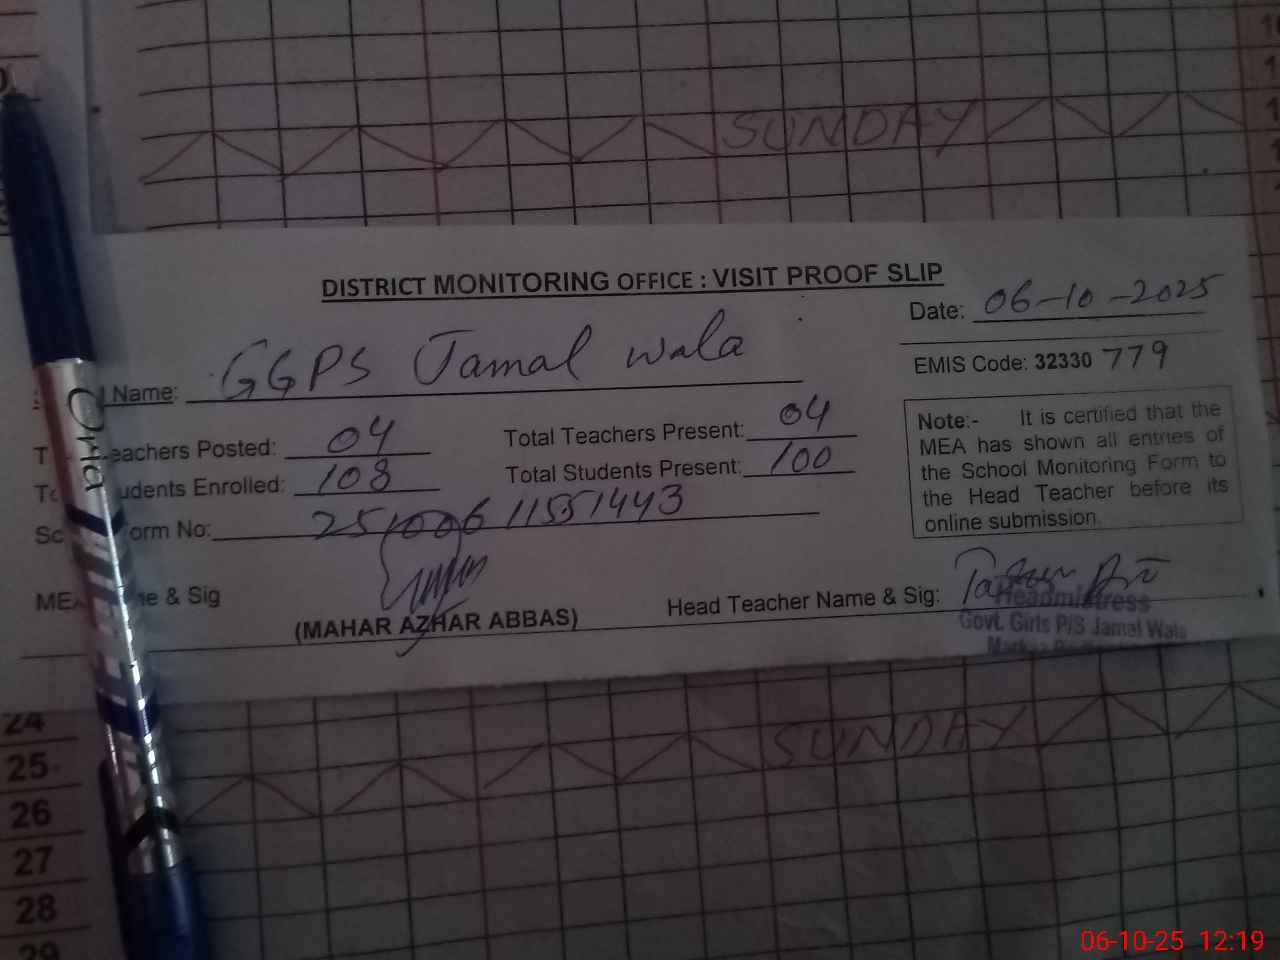 SUNDAY
DISTRICT MONITORING OFFICE : VISIT PROOF SLIP
Date: 06-10-2025
Name: GGPS Jamal wala
EMIS Code: 32330 779
eachers Posted: 04 Total Teachers Present: 04
udents Enrolled: 108 Total Students Present: 100
orm No: 25100611551443
Note:- It is certified that the
MEA has shown all entries of
the School Monitoring Form to
the Head Teacher before its
online submission.
& Sig
(MAHAR AZHAR ABBAS)
Head Teacher Name & Sig:
Headmistress
Govt. Girls P/S Jamal Wala
SUNDAY
24
25
26
27
28
29
06-10-25 12:19